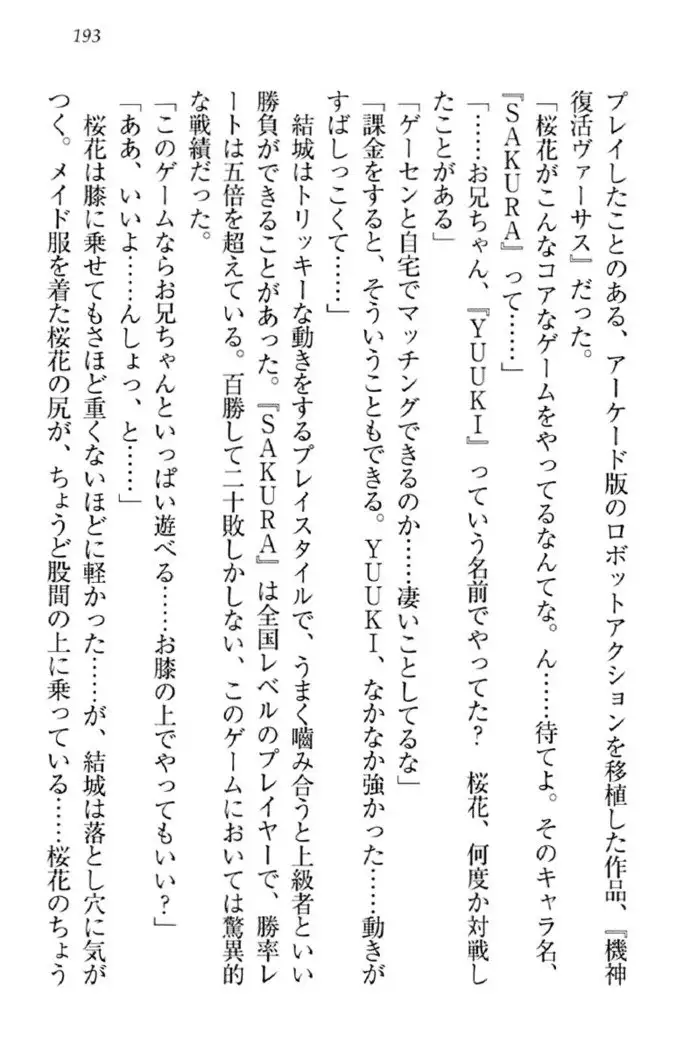 193
プレイしたことのある、アーケード版のロボットアクションを移植した作品、『機神
復活ヴァーサス』だった。
「桜花がこんなコアなゲームをやってるなんてな。ん……待てよ。そのキャラ名、
『SAKURA』って……」
「……お兄ちゃん、『YUUKI』っていう名前でやってた？　桜花、何度か対戦し
たことがある」
「ゲーセンと自宅でマッチングできるのか……凄いことしてるな」
「課金をすると、そういうこともできる。YUUKI、なかなか強かった……動きが
すばしっこくて……」
結城はトリッキーな動きをするプレイスタイルで、うまく嚙み合うと上級者といい
勝負ができることがあった。『SAKURA』は全国レベルのプレイヤーで、勝率レ
ートは五倍を超えている。百勝して二十敗しかしない、このゲームにおいては驚異的
な戦績だった。
「このゲームならお兄ちゃんといっぱい遊べる……お膝の上でやってもいい？」
「ああ、いいよ……んしょっ、と……」
桜花は膝に乗せてもさほど重くないほどに軽かった……が、結城は落とし穴に気が
つく。メイド服を着た桜花の尻が、ちょうど股間の上に乗っている……桜花のちょう